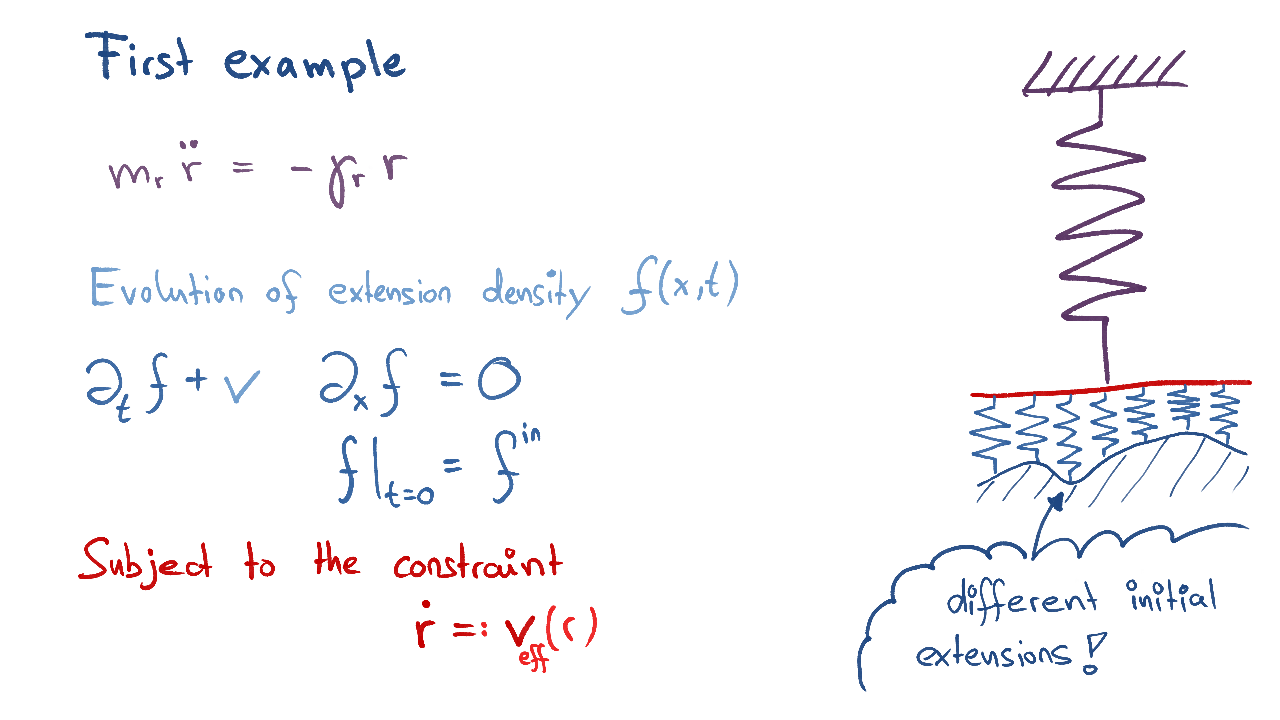 First example
mᵣ r̈ = - γᵣ r
Evolution of extension density f(x,t)
∂ₜ f + v ∂ₓ f = 0
f|ₜ₌₀ = fⁱⁿ
Subject to the constraint
ṙ =: v_eff(r)
different initial
extensions!